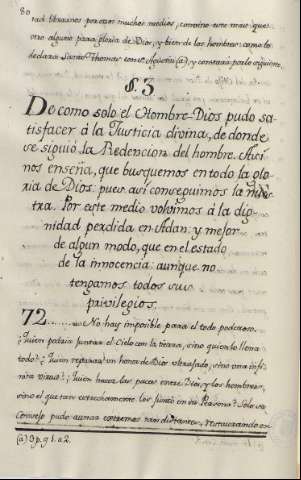 80
rad librarnos por otros muchos medios, convino este mas que
otro alguno para gloria de Dios, y bien de los hombres: como lo
declara Santo Thomas con Sn. Agustin (a), y constara por lo siguiente.
§. 3
De como solo el Hombre-Dios pudo sa-
tisfacer à la Justicia divina, de donde
se siguiò la Redencion del hombre. Asi
nos enseña, que busquemos en todo la glo-
ria de Dios: pues asi conseguimos la nues-
tra. Por este medio volvimos à la dig-
nidad perdida en Adan: y mejor
de algun modo, que en el estado
de la innocencia: aunque no
tengamos todos sus
privilegios.
72........ No hay imposible para el todo poderoso.
¿Quien podria juntar el Cielo con la tierra, sino quien lo llena
todo? ¿Quien reparar un honor de Dios ultrajado, sino una infi-
nita virtud? ¿Quien hacer las paces entre Dios, y los hombres,
sino el que tan estrechamente los juntò en su Persona? Solo su
Consejo pudo aunar extremos tan distantes, restaurando en
(a) 3 p. q. 1. a. 2.